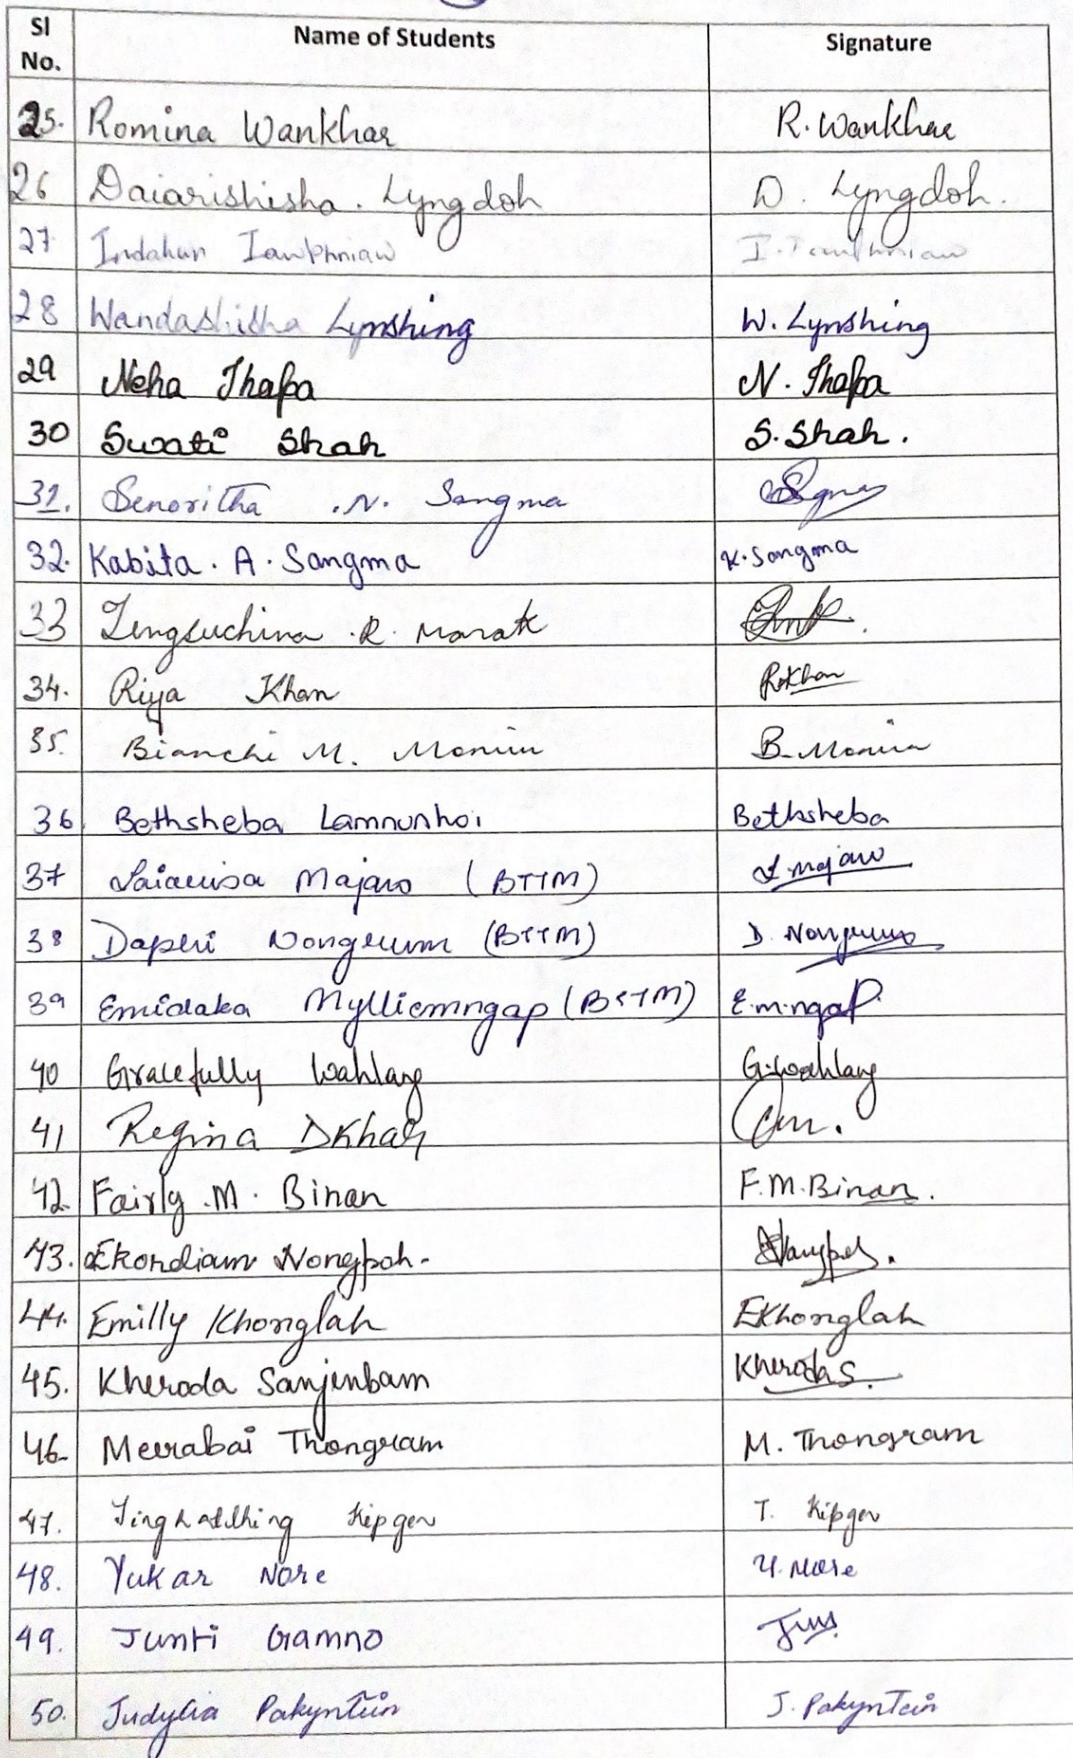 Sl No. Name of Students Signature
25. Romina Wankhar R. Wankhar
26 Daiarishisha. Lyngdoh D. Lyngdoh.
27. Indahun Iawphniaw I. Iawphniaw
28 Wandashisha Lynshing W. Lynshing
29 Neha Thapa N. Thapa
30 Swati Shah S. Shah.
31. Senoritha .N. Sangma
32. Kabita. A. Sangma K. Sangma
33 Tengsuchina .R. Marak
34. Riya Khan R. Khan
35. Bianchi M. Momin B. Momin
36. Bethsheba Lamnunhoi Bethsheba
37 Majaw (BTTM) L. Majaw
38 Daperi Nongrum (BTTM) D. Nongrum
39 Emidaka Mylliemngap (BTTM) E.m.ngap
40 Gracefully Wahlang G. Wahlang
41 Regina DKhar
42. Fairly .M. Binan F.M. Binan.
43. Ekordiam Nongpoh.
44. Emilly Khonglah EKhonglah
45. Kheroda Sanjenbam Kheroda S.
46. Meerabai Thongram M. Thongram
47. Kipgen T. Kipgen
48. Yukar Nore Y. Nore
49. Junti Gamno
50. Judylia Pakyntein J. Pakyntein